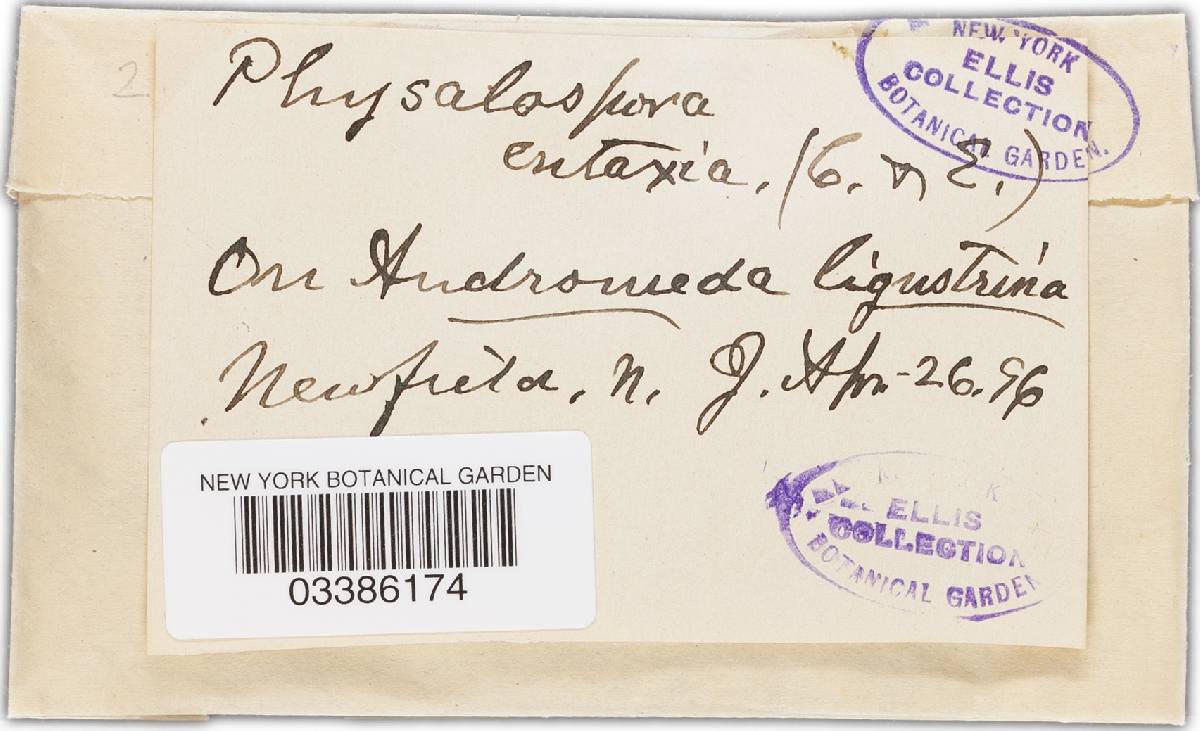 2
Physalospora
entaxia. (C. & E.)
On Andromeda ligustrina
Newfield, N. J. Apr-26.96
NEW YORK
ELLIS
COLLECTION
BOTANICAL GARDEN.
NEW YORK BOTANICAL GARDEN
03386174
ELLIS
COLLECTION
BOTANICAL GARDEN